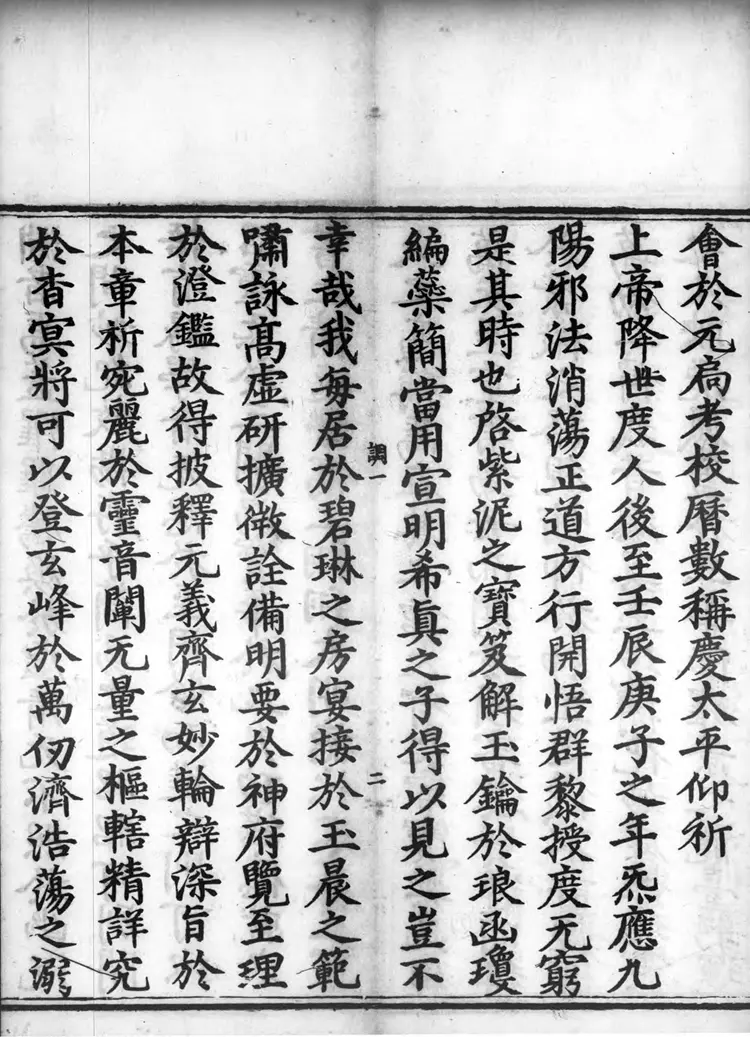 會於元扄考校曆數稱慶太平仰祈
上帝降世度人後至壬辰庚子之年炁應九
陽邪法消蕩正道方行開悟群黎授度无窮
是其時也啓紫泥之寶笈解玉鑰於琅函瓊
編蘂簡當用宣明希真之子得以見之豈不
調一
二
幸哉我每居於碧琳之房宴接於玉晨之範
嘯詠高虛研擴微詮備明要於神府覽至理
於澄鑑故得披釋元義齊玄妙輪辯深旨於
本章祈宛麗於靈音闡无量之樞轄精詳究
於杳冥將可以登玄峰於萬仞濟浩蕩之溺